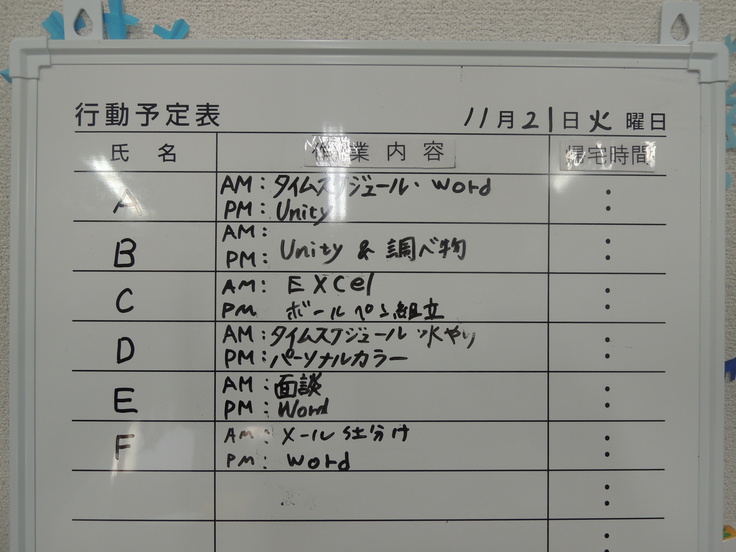 行動予定表 11月21日火曜日
氏名 作業内容 帰宅時間
A AM:タイムスケジュール・Word :
PM:Unity
B AM: :
PM: Unity & 調べ物
C AM: EXCel :
PM ボールペン組立
D AM:タイムスケジュール 水やり :
PM:パーソナルカラー
E AM:面談 :
PM:Word
F AM:メール仕分け :
PM:Word
:
: